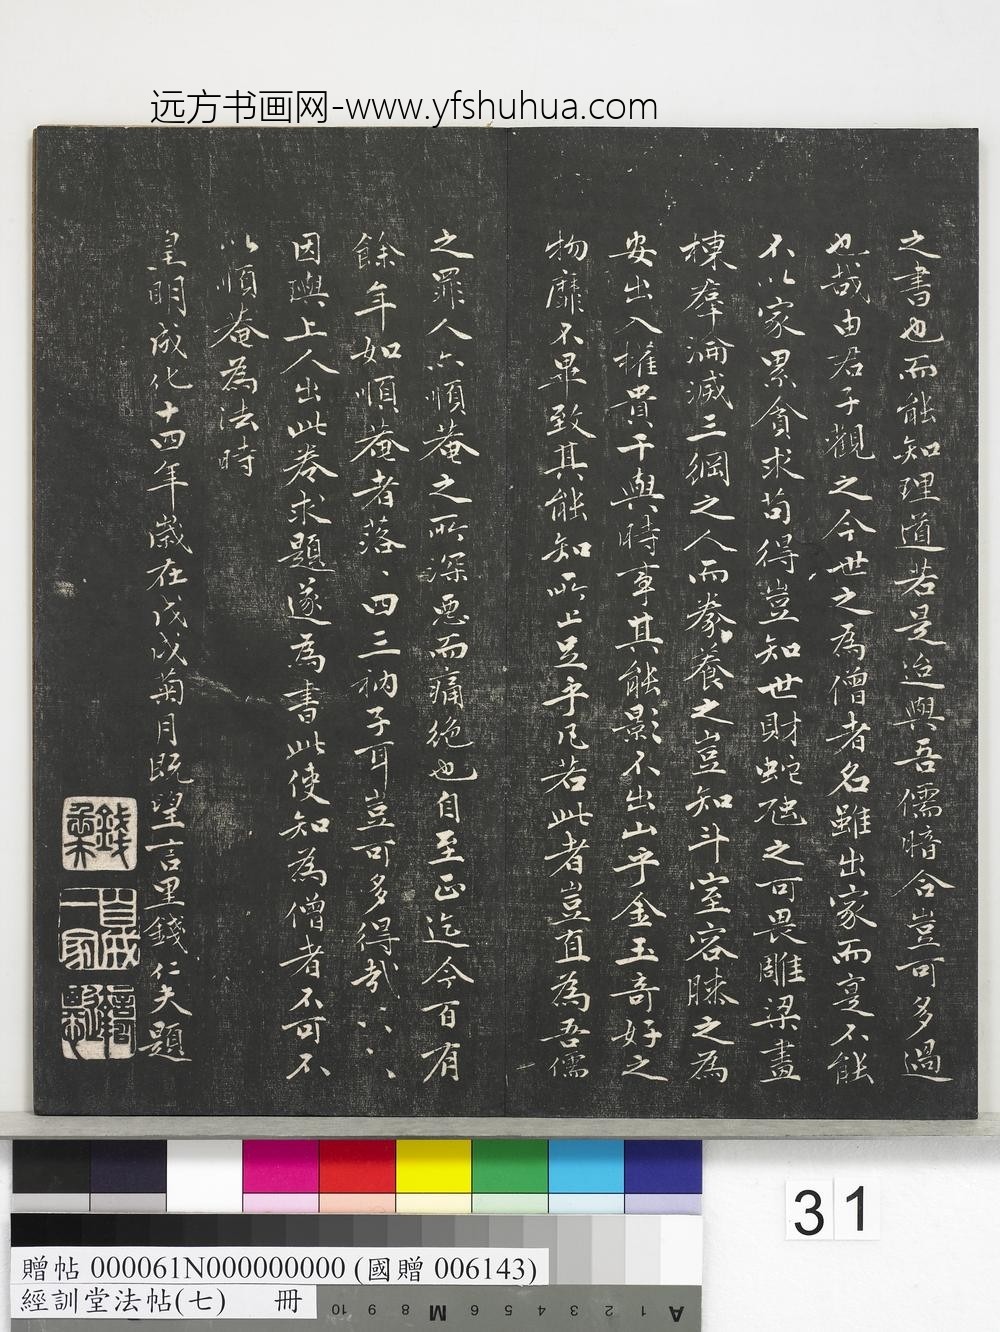 远方书画网-www.yfshuhua.com
之書也而能知理道若是迨與吾儒暗合豈可多過
也哉由君子觀之今世之為僧者名雖出家而寔不能
不以家累貪求苟得豈知世財蛇虺之可畏雕梁畫
棟羣淪滅三綱之人而豢養之豈知斗室容膝之為
安出入權貴干與時事其能影不出山乎金玉奇好之
物靡不畢致其能知所止足乎凡若此者豈直為吾儒
之罪人亦順菴之所深惡而痛絕也自至正迄今百有
餘年如順菴者落、四三衲子耳豈可多得哉
因與上人出此卷求題遂為書此使知為僧者不可不
以順菴為法時
皇明成化十四年歲在戊戌菊月既望一言里錢仁夫題
31
贈帖 000061N000000000 (國贈 006143)
經訓堂法帖(七) 冊
A 1 2 3 4 5 6 M 8 9 10